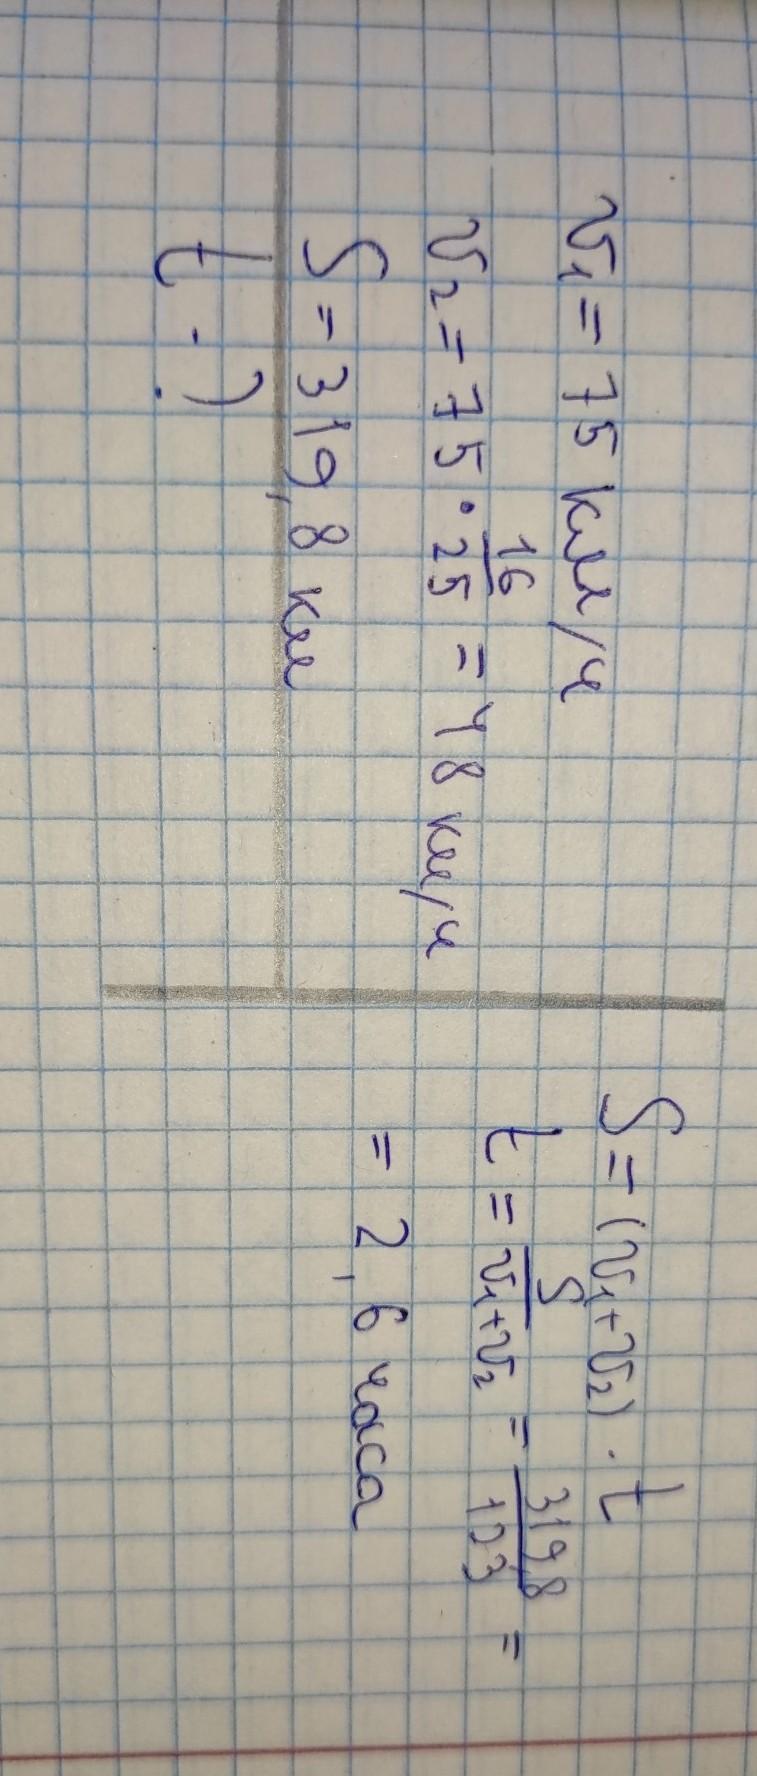 v₁ = 75 км/ч
v₂ = 75 · 16/25 = 48 км/ч
S = 319,8 км
t - ?
S = (v₁ + v₂) · t
t = S/(v₁+v₂) = 319,8/123 =
= 2,6 часа